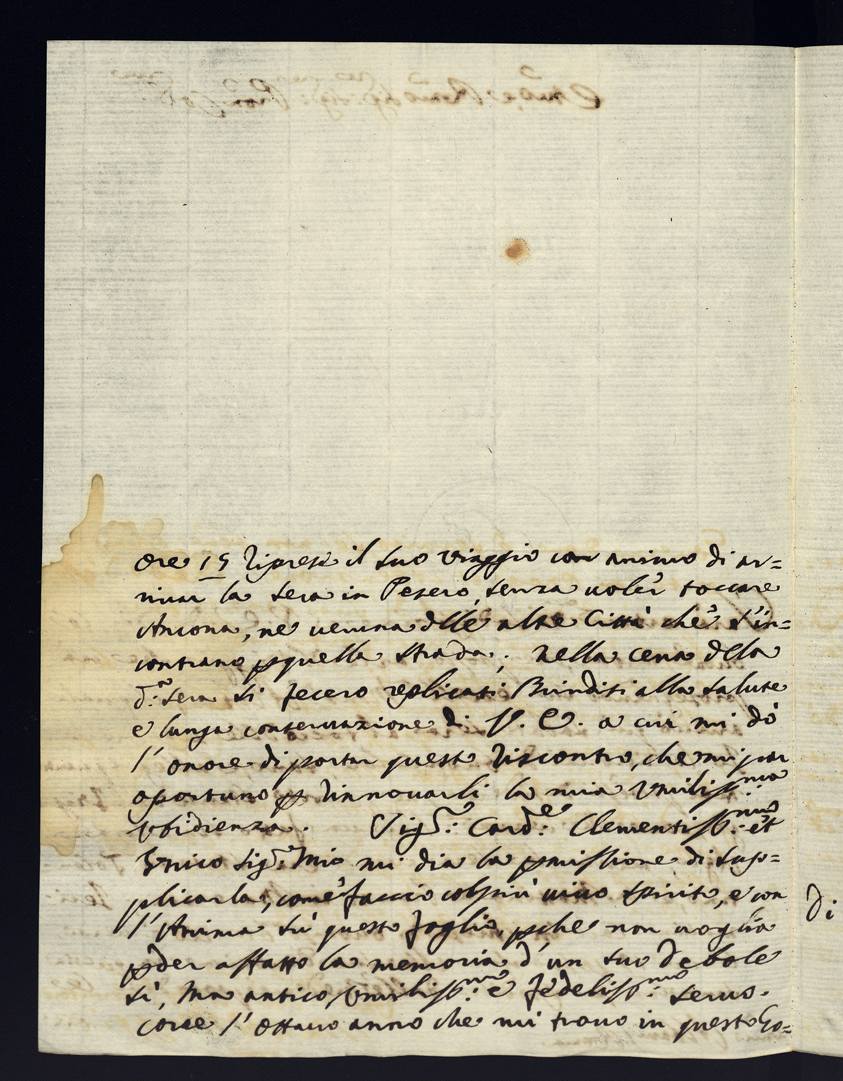 ore 15 riprese il suo viaggio con animo di ar=
rivar la sera in Pesero, senza voler toccare
Ancona, ne veruna dlle altre Città che s'in=
contrano p quella strada; nella cena della
d:ª sera si fecero replicati Brindisi alla salute
e lunga conservazione di V. E. a cui mi dò
l'onore di portar questo riscontro, che mi par
oportuno p rinnovarli la mia Vmiliss:ma
vbidienza. Sig:re Card:le Clementiss:mo et
Vnico Sig:re Mio mi dia la pmissione di sup=
plicarla, come faccio col più vivo spirito, e con
l'Anima sù questo foglio, pche non voglia
pder affatto la memoria d'un suo debole
sì, ma antico, Vmiliss:mo e fedeliss:mo servo.
corre l'ottavo anno che mi trovo in questo Go=
di